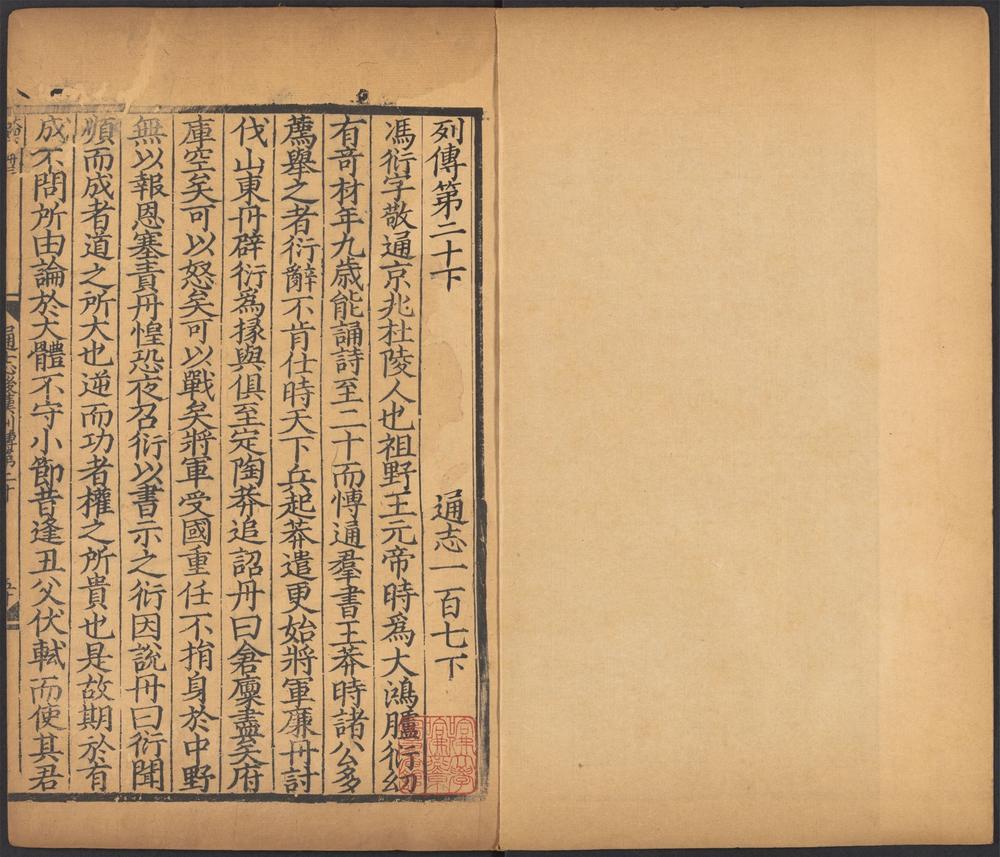 列傳第二十下 通志一百七下
馮衍字敬通京兆杜陵人也祖野王元帝時爲大鴻臚衍幼
有奇材年九歲能誦詩至二十而愽通羣書王莽時諸公多
薦舉之者衍辭不肯仕時天下兵起莽遣更始將軍廉丹討
伐山東丹辟衍爲掾與俱至定陶莽追詔丹曰倉廩盡矣府
庫空矣可以怒矣可以戰矣將軍受國重任不捐身於中野
無以報恩塞責丹惶恐夜召衍以書示之衍因說丹曰衍聞
順而成者道之所大也逆而功者權之所貴也是故期於有
成不問所由論於大體不守小節昔逢丑父伏軾而使其君
通志後漢列傳第二十